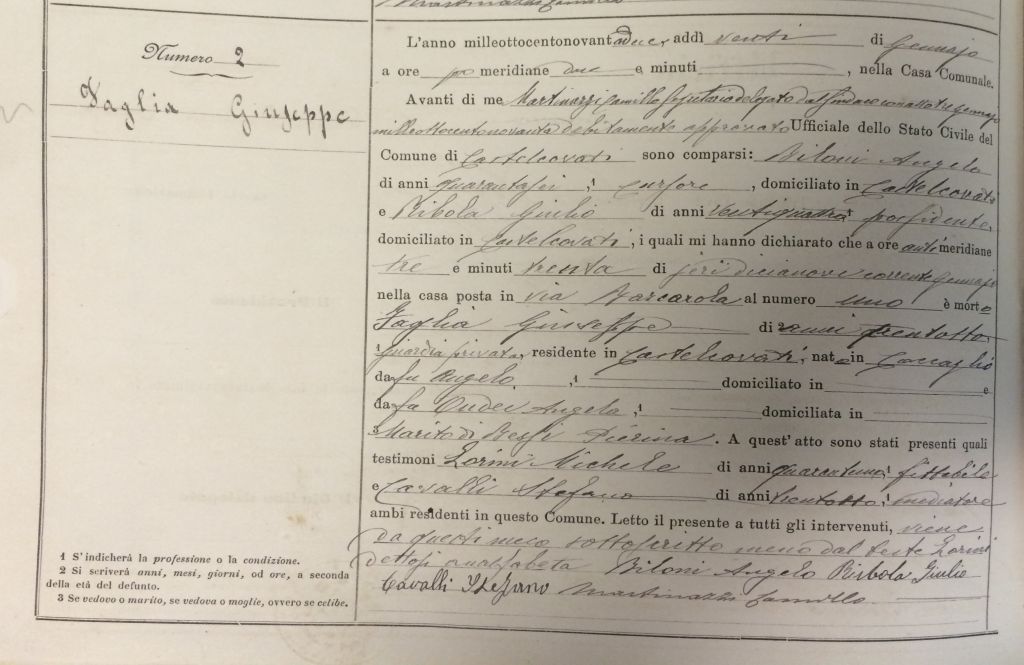 Numero 2
Vaglia Giuseppe
L'anno milleottocentonovantadue, addì venti di Gennajo
a ore po meridiane due e minuti , nella Casa Comunale.
Avanti di me Martinazzi Camillo Segretario delegato dal Sindaco con atto tre Gennajo
milleottocentonovanta debitamente approvato Ufficiale dello Stato Civile del
Comune di Castelcovati sono comparsi: Biloni Angelo
di anni quarantasei, 1 cursore, domiciliato in Castelcovati
e Ribola Giulio di anni ventiquattro possidente,
domiciliato in Castelcovati, i quali mi hanno dichiarato che a ore antimeridiane
tre e minuti trenta di jeri diciannove corrente Gennajo
nella casa posta in via Barcarola al numero uno è morto
Vaglia Giuseppe di 2 anni trentotto,
1 guardia privata, residente in Castelcovati, nato in Coccaglio
da fu Angelo, 1 domiciliato in e
da fu Angela, 1 domiciliata in
3 Marito di Bessi Pierina. A quest'atto sono stati presenti quali
testimoni Lorini Michele di anni quarantuno, 1 fittabile
e Cavalli Stefano di anni trentotto, 1 mediatore
ambi residenti in questo Comune. Letto il presente a tutti gli intervenuti, viene
da questi meco sottoscritto meno dal teste Lorini
dettosi analfabeta Biloni Angelo Ribola Giulio
Cavalli Stefano Martinazzi Camillo
1 S'indicherà la professione o la condizione.
2 Si scriverà anni, mesi, giorni, od ore, a seconda
della età del defunto.
3 Se vedovo o marito, se vedova o moglie, ovvero se celibe.